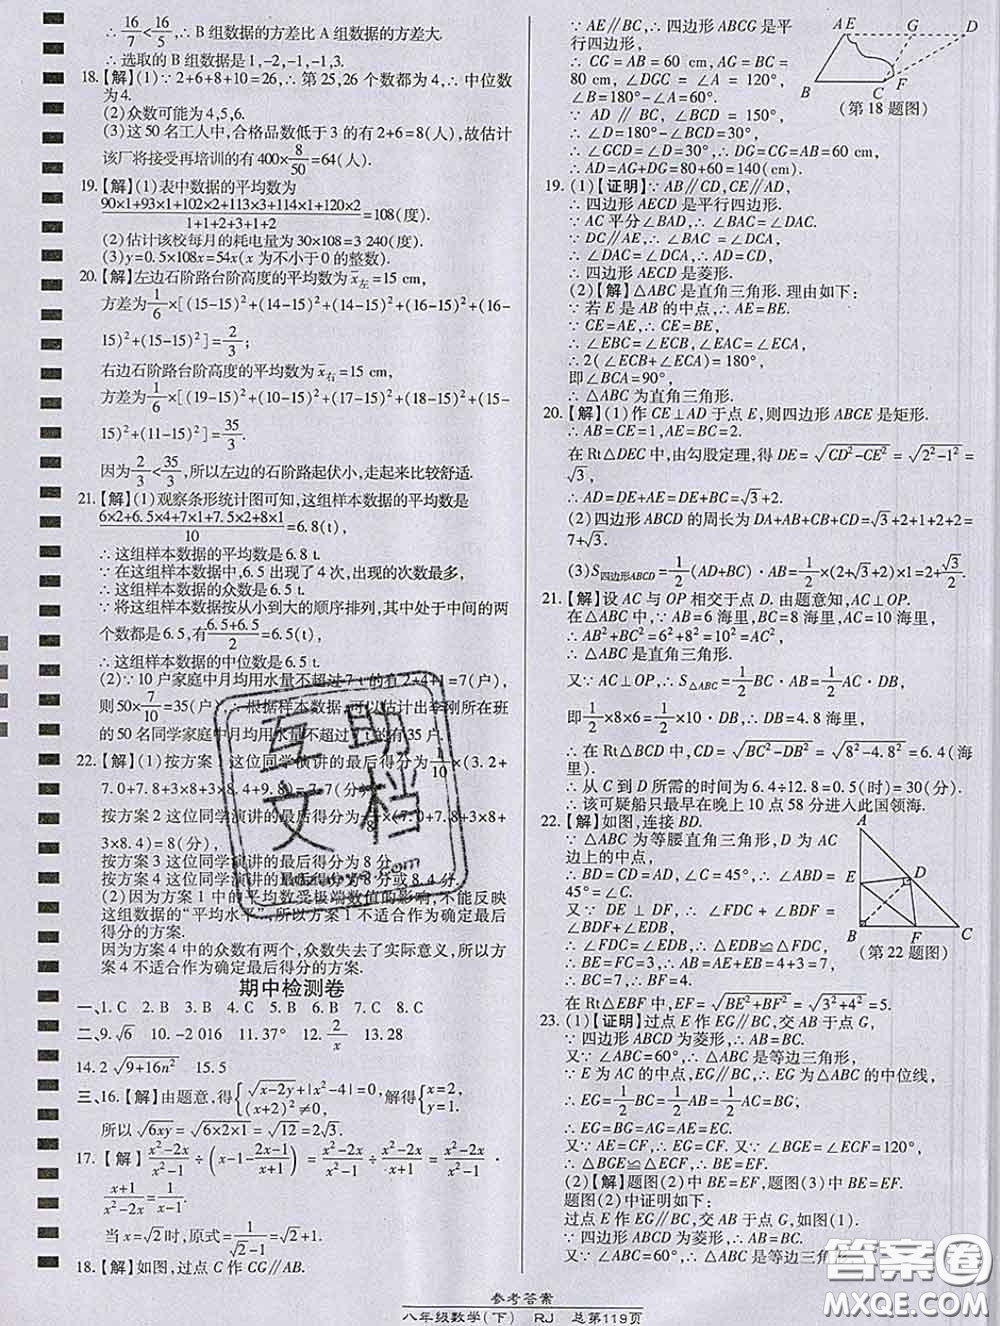 ∴ 16/7 < 16/5, ∴ B 组数据的方差比 A 组数据的方差大.
∴ 选取的 B 组数据是 1,-2,-1,-1,3.
18.【解】(1)∵2+6+8+10=26,∴ 第 25,26 个数都为 4,∴ 中位数
为 4.
(2)众数可能为 4,5,6.
(3)这 50 名工人中,合格品数低于 3 的有 2+6=8(人),故估计
该厂将接受再培训的有 400×8/50=64(人).
19.【解】(1)表中数据的平均数为
(90×1+93×1+102×2+113×3+114×1+120×2)/(1+1+2+3+1+2)=108(度).
(2)估计该校每月的耗电量为 30×108=3 240(度).
(3)y=0.5×108x=54x(x 为不小于 0 的整数).
20.【解】左边石阶路台阶高度的平均数为 x̄左=15 cm,
方差为 1/6×[(15-15)²+(14-15)²+(14-15)²+(16-15)²+(16-
15)²+(15-15)²]=2/3;
右边石阶路台阶高度的平均数为 x̄右=15 cm,
方差为 1/6×[(19-15)²+(10-15)²+(17-15)²+(18-15)²+(15-
15)²+(11-15)²]=35/3.
因为 2/3<35/3,所以左边的石阶路起伏小,走起来比较舒适.
21.【解】(1)观察条形统计图可知,这组样本数据的平均数是
(6×2+6.5×4+7×1+7.5×2+8×1)/10=6.8(t),
∴ 这组样本数据的平均数是 6.8 t.
∵ 在这组样本数据中,6.5 出现了 4 次,出现的次数最多,
∴ 这组样本数据的众数是 6.5 t.
∵ 将这组样本数据按从小到大的顺序排列,其中处于中间的两
个数都是 6.5,有(6.5+6.5)/2=6.5,
∴ 这组样本数据的中位数是 6.5 t.
(2)∵10 户家庭中月均用水量不超过 7 t 的有 2+4+1=7(户),
50×7/10=35(户),∴ 根据样本数据,可以估计出小刚所在班
的 50 名同学家庭中月均用水量不超过 7 t 的有 35 户.
22.【解】(1)按方案 1 这位同学演讲的最后得分为 1/10×(3.2+
7.0+7.8+3×8+3×8.4+9.8)=7.7(分);
按方案 2 这位同学演讲的最后得分为 1/8×(7.0+7.8+3×8+
3×8.4)=8(分),
按方案 3 这位同学演讲的最后得分为 8 分,
按方案 4 这位同学演讲的最后得分为 8 分或 8.4 分.
(2)因为方案 1 中的平均数受极端数值的影响,不能反映
这组数据的“平均水平”,所以方案 1 不适合作为确定最后
得分的方案.
因为方案 4 中的众数有两个,众数失去了实际意义,所以方
案 4 不适合作为确定最后得分的方案.
期中检测卷
一、1. C 2. B 3. B 4. C 5. B 6. B 7. C 8. C
二、9.√6 10.-2 016 11.37° 12.2/x 13.28
14.2√(9+16n²) 15.5
三、16.【解】由题意,得{√(x-2y)+|x²-4|=0, (x+2)²≠0, 解得{x=2, y=1.
所以 √(6xy)=√(6×2×1)=√12=2√3.
17.【解】(x²-2x)/(x²-1)÷(x-1-(2x-1)/(x+1))=(x²-2x)/(x²-1)÷(x²-2x)/(x+1)=(x²-2x)/(x²-1)·
(x+1)/(x²-2x)=1/(x-1).
当 x=√2 时,原式=1/(√2-1)=√2+1.
18.【解】如图,过点 C 作 CG∥AB.
∵ AE∥BC,∴ 四边形 ABCG 是平
行四边形,
∴ CG=AB=60 cm,AG=BC=
80 cm,∠DGC=∠A=120°,
∠B=180°-∠A=60°.
∵ AD∥BC,∠BCD=150°,
∴ ∠D=180°-∠BCD=30°,
∴ ∠GCD=∠D=30°,∴ DG=CG=AB=60 cm,
∴ AD=AG+DG=80+60=140(cm).
A E G D
B C F
(第 18 题图)
19.(1)【证明】∵ AB∥CD,CE∥AD,
∴ 四边形 AECD 是平行四边形.
∵ AC 平分∠BAD,∴ ∠BAC=∠DAC.
∵ DC∥AE,∴ ∠BAC=∠DCA,
∴ ∠DAC=∠DCA,∴ AD=CD,
∴ 四边形 AECD 是菱形.
(2)【解】△ABC 是直角三角形.理由如下:
∵ 若 E 是 AB 的中点,∴ AE=BE.
∵ CE=AE,∴ CE=BE,
∴ ∠EBC=∠ECB,∠EAC=∠ECA,
∴ 2(∠ECB+∠ECA)=180°,
即∠BCA=90°,
∴ △ABC 为直角三角形.
20.【解】(1)作 CE⊥AD 于点 E,则四边形 ABCE 是矩形.
∴ AB=CE=1,AE=BC=2.
在 Rt△DEC 中,由勾股定理,得 DE=√(CD²-CE²)=√(2²-1²)=
√3,
∴ AD=DE+AE=√3+2.
(2)四边形 ABCD 的周长为 DA+AB+CB+CD=√3+2+1+2+2=
7+√3.
(3)S四边形ABCD=1/2(AD+BC)·AB=1/2×(2+√3+2)×1=2+√3/2.
21.【解】设 AC 与 OP 相交于点 D.由题意知,AC⊥OP.
在△ABC 中,∵ AB=6 海里,BC=8 海里,AC=10 海里,
∴ AB²+BC²=6²+8²=10²=AC²,
∴ △ABC 是直角三角形.
又∵ AC⊥OP,∴ S△ABC=1/2AB·BC=1/2AC·BD,
即1/2×8×6=1/2×10×BD,∴ BD=4.8 海里,
∴ 在 Rt△BCD 中,CD=√(BC²-DB²)=√(8²-4.8²)=6.4(海
里),
∴ 从 C 到 D 所需的时间为 6.4÷12.8=0.5(时)=30(分).
∴ 该可疑船只最早在晚上 10 点 58 分进入此国领海.
22.【解】如图,连接 BD.
∵ △ABC 为等腰直角三角形,D 为 AC
边上的中点,
∴ BD=CD=AD,∠ABD=∠CBD=
45°=∠C.
又∵ DE⊥DF,∴ ∠FDC+∠BDF=
∠EDB+∠BDF,∴ ∠FDC=∠EDB,
∴ △EDB≌△FDC,
∴ FC=EB=3,∴ AB=7,
∴ BC=7,∴ BF=4.
在 Rt△EBF 中,EF=√(BE²+BF²)=√(3²+4²)=5.
A
E D
B F C
(第 22 题图)
23.(1)【证明】过点 E 作 EG∥BC,交 AB 于点 G,
∵ 四边形 ABCD 为菱形,∴ AB=BC.
又∵ ∠ABC=60°,∴ △ABC 是等边三角形,
∵ E 为 AC 的中点,∴ EG 是△ABC 的中位线,
∴ EG=1/2BC=1/2AB=1/2AC.
∴ EG=BG=AG=AE=EC.
又∵ AE=CF,∴ EG=CF.又∵ ∠BGE=∠ECF=120°,
∴ △BGE≌△ECF,∴ BE=EF.
(2)【解】题图(2)中 BE=EF,题图(3)中 BE=EF.
题图(2)中证明如下:
过点 E 作 EG∥BC,交 AB 于点 G,如图(1).
∵ 四边形 ABCD 为菱形,∴ AB=BC.
又∵ ∠ABC=60°,∴ △ABC 是等边三角形,
互助
文档
答案圈
MXQE.COM
参考答案
八年级数学(下) RJ 总第119页